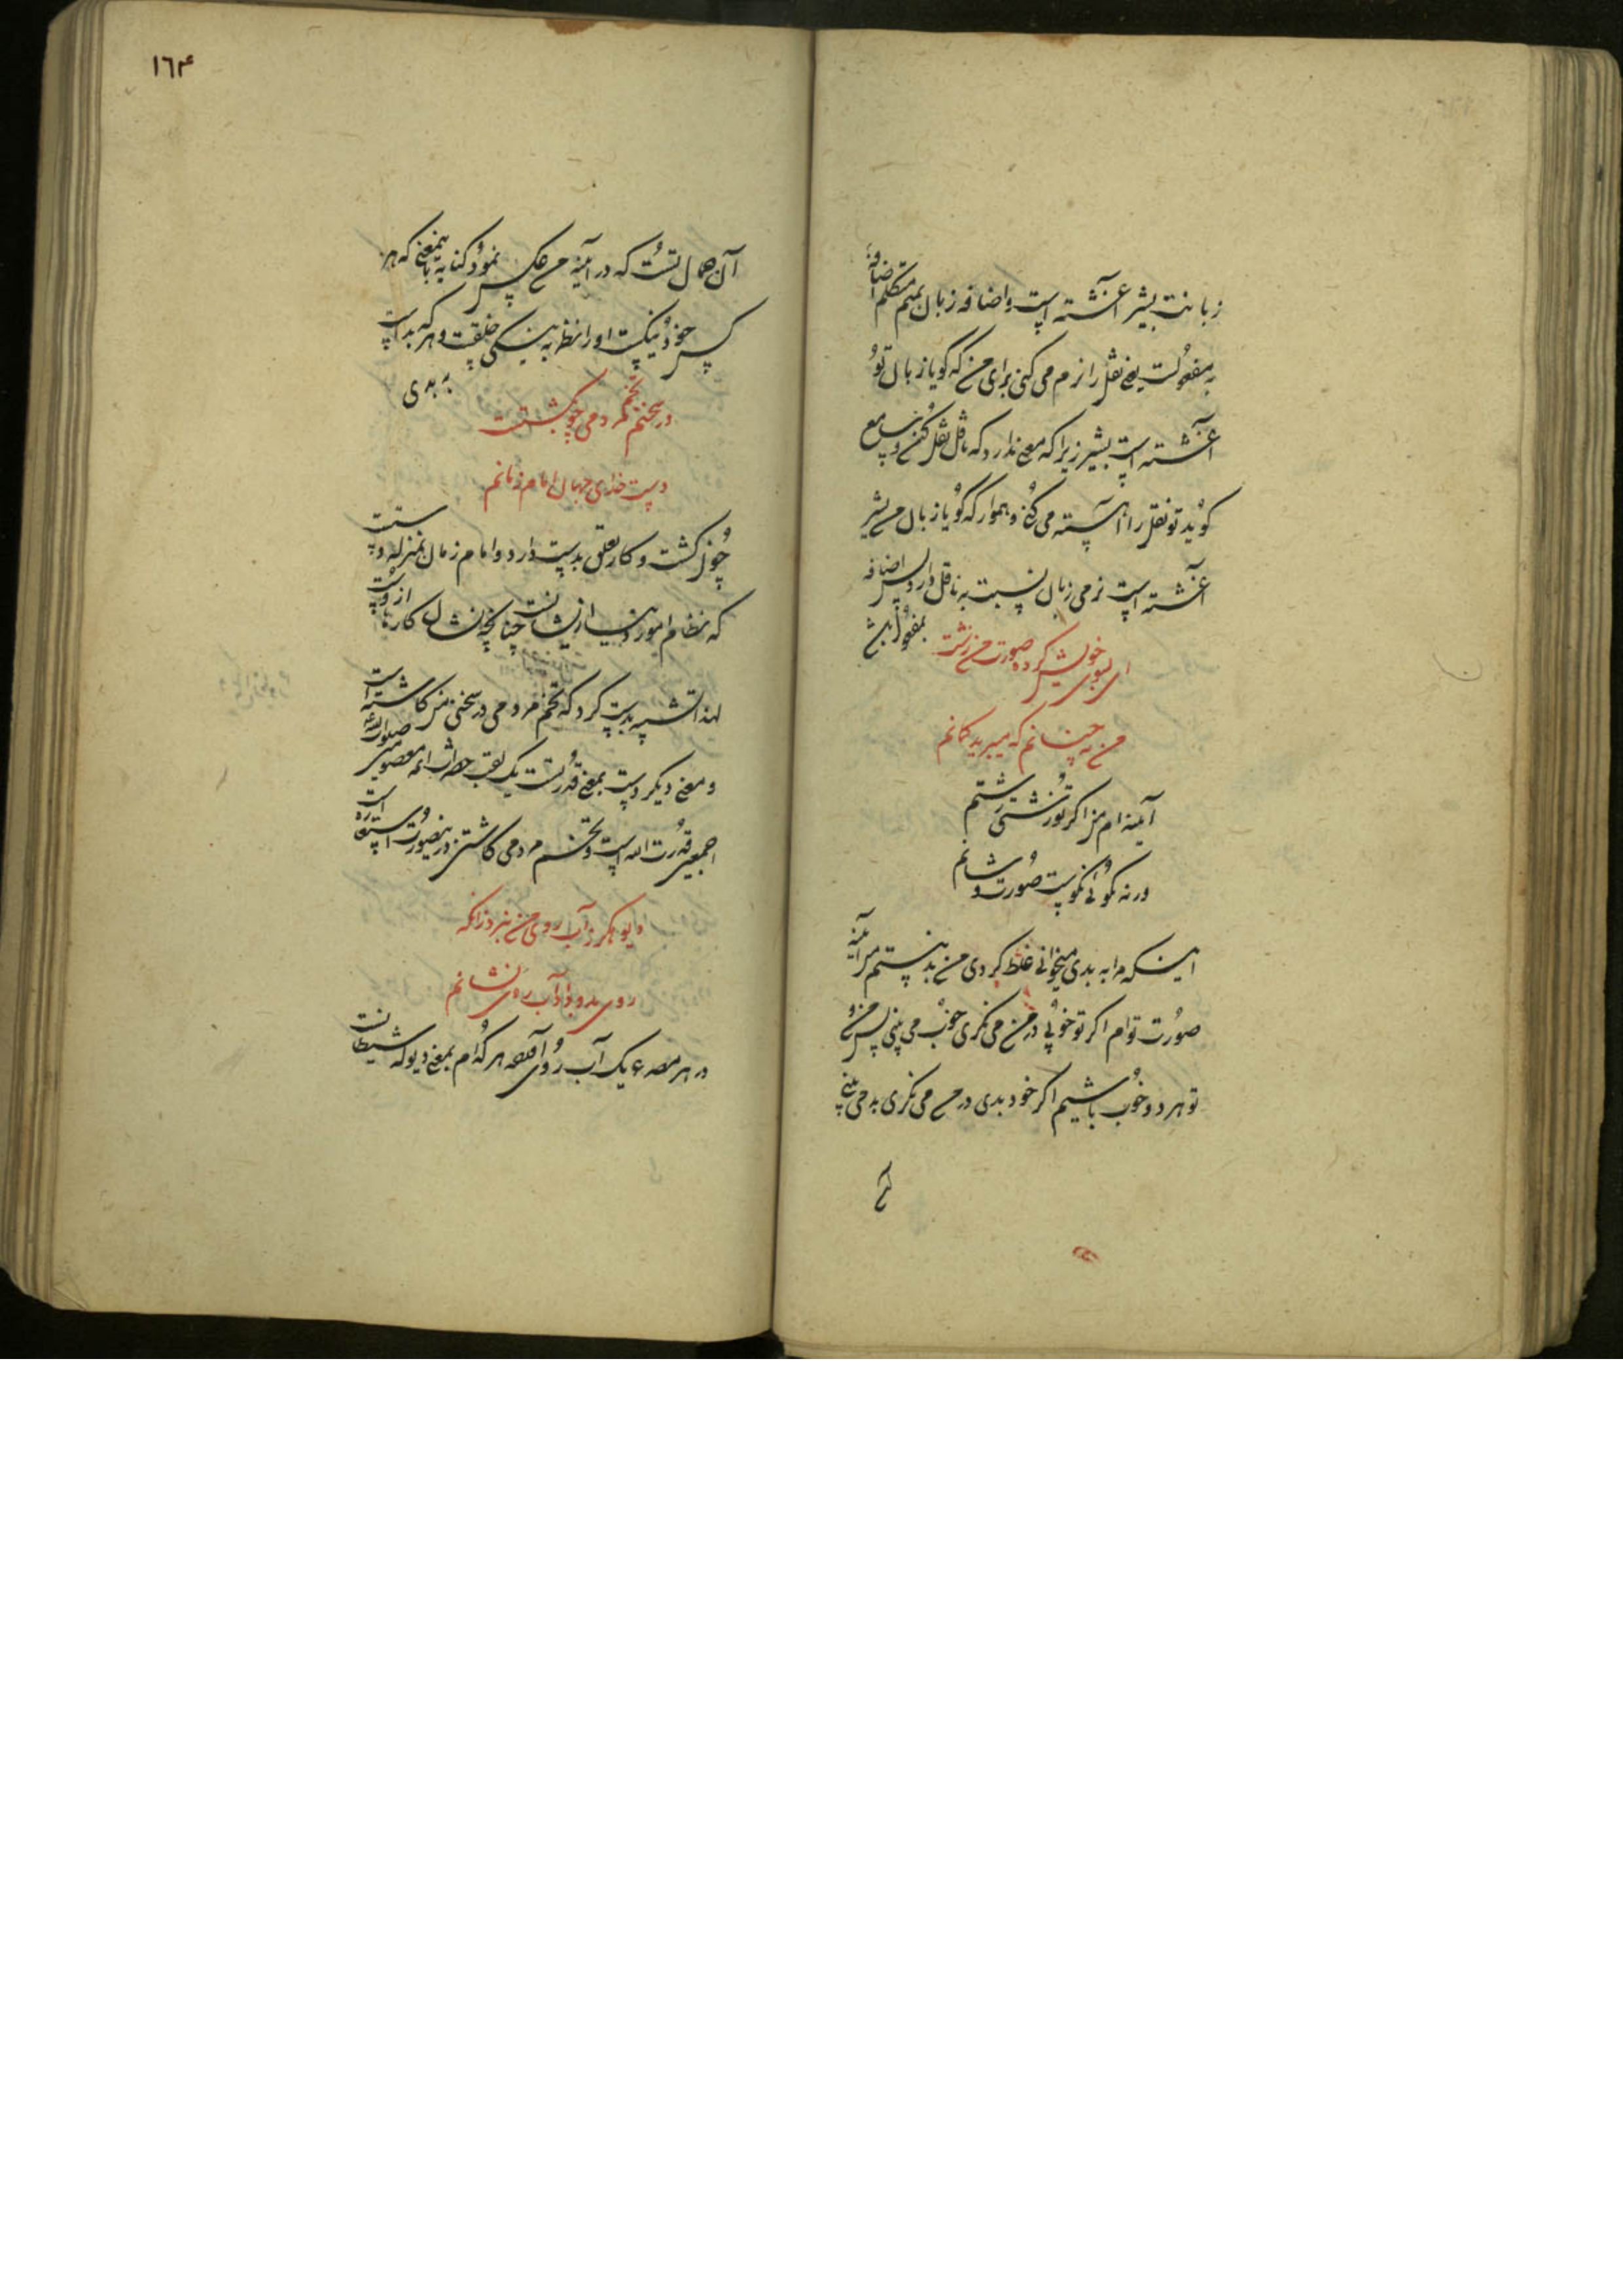 زبانت بشیر آغشته است و اضافه زبان بمیم متکلم اضافهٔ
به مفعولست یعنی نقل را نرم می کنی برای من که گویا زبان تو
آغشته است بشیر زیرا که معنی ندارد که ناقل نقل کند و سامع
گوید تو نقل را آهسته می کنی و هموار که گویا زبان من بشیر
آغشته است نرمی زبان نسبت به ناقل دارد پس اضافه
بمفعول باشد
ای بسوی خویش کرده صورت من زشت
من نه چنانم که میبرید گمانم
آینه ام من اگر تو زشتی زشتم
ور نه نکوئی نکوست صورت و شانم
اینکه مرا به بدی میخوانی غلط کردی من بد نیستم من آینه
صورت توام اگر تو خوبی در من می نگری خوب می بینی پس من و
تو هر دو خوب باشیم اگر خود بدی در من می نگری بد می بینی
آن
١٦۴
آن همان تست که در آینه من عکس نمود کنایه باینمعنی که هر
کس خود نیکست او را نظر به نیکی خلقست و هر که بد است
به بدی
در سخنم تخم مردمی چو بکشتست
دست خدای جهان امام زمانم
چون کشت و کار تعلق بدست دارد و امام زمان بمنزله دست
که نظام امور دنیا از ایشانست چنانکه نشان کارها از دست
لهذا تشبیه بدست کرد که تخم مردمی در سخن من کاشته است
و معنی دیگر دست بمعنی قدرتست یک لقب حضرات ائمه معصومین صلوات الله
اجمعین قدرت الله است و تخم مردمی کاشتن درینصورت استعاره است
دیو هگرز آب روی من نبرد زانکه
روی بدو داد آب روی نشانم
در هر مصرع یک آب روی آمده هر کدام بمعنی دیو که شیطانست